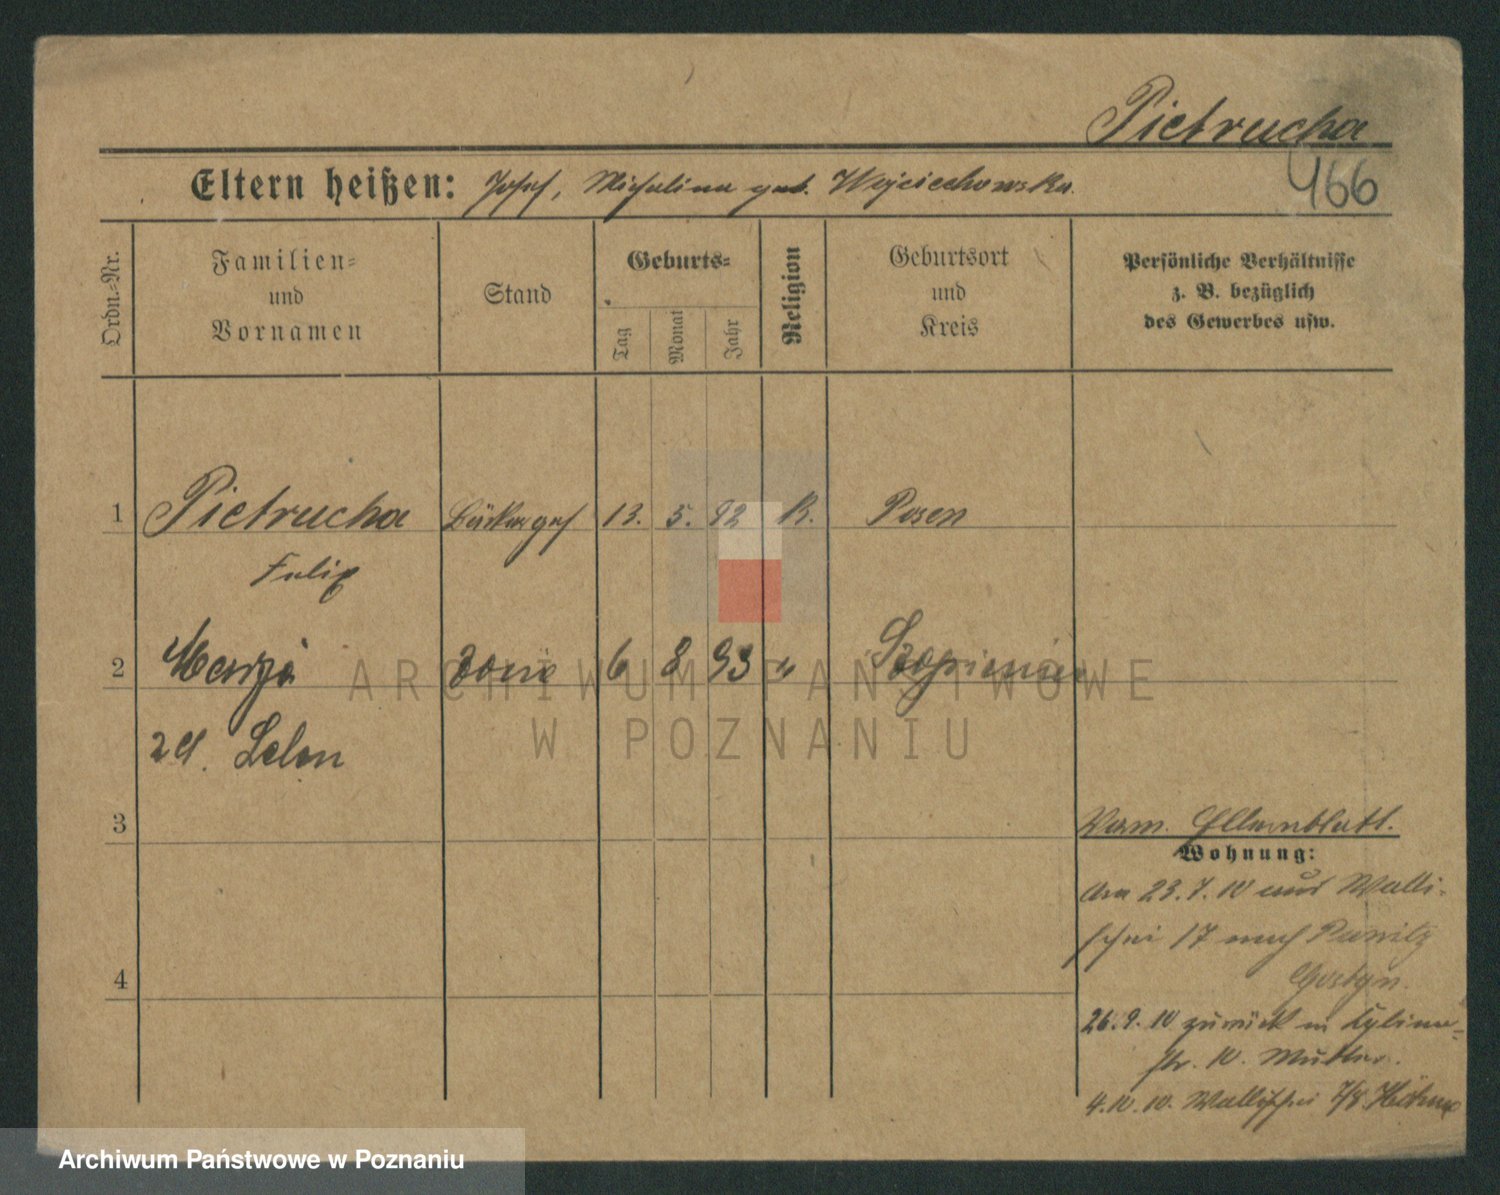 Pietrucha
466
Eltern heißen: Josef, Michalina geb. Wojciechowska.
Ordn.-Nr.
Familien-
und
Vornamen
Stand
Geburts-
Tag
Monat
Jahr
Religion
Geburtsort
und
Kreis
Persönliche Verhältnisse
z. B. bezüglich
des Gewerbes usw.
1 Pietrucha Bäckerges 13. 5. 92 K. Posen
Felix
2 żona 6 8 93 "
ARCHIWUM PAŃSTWOWE
W POZNANIU
3
Elternblatt.
Wohnung:
23.7.10 aus Walli-
schei 17 nach Punitz
Gostyn.
4
26.9.10 zurück in
str. 10. Mutter.
4.10.10. Wallischei 7/8.
Archiwum Państwowe w Poznaniu